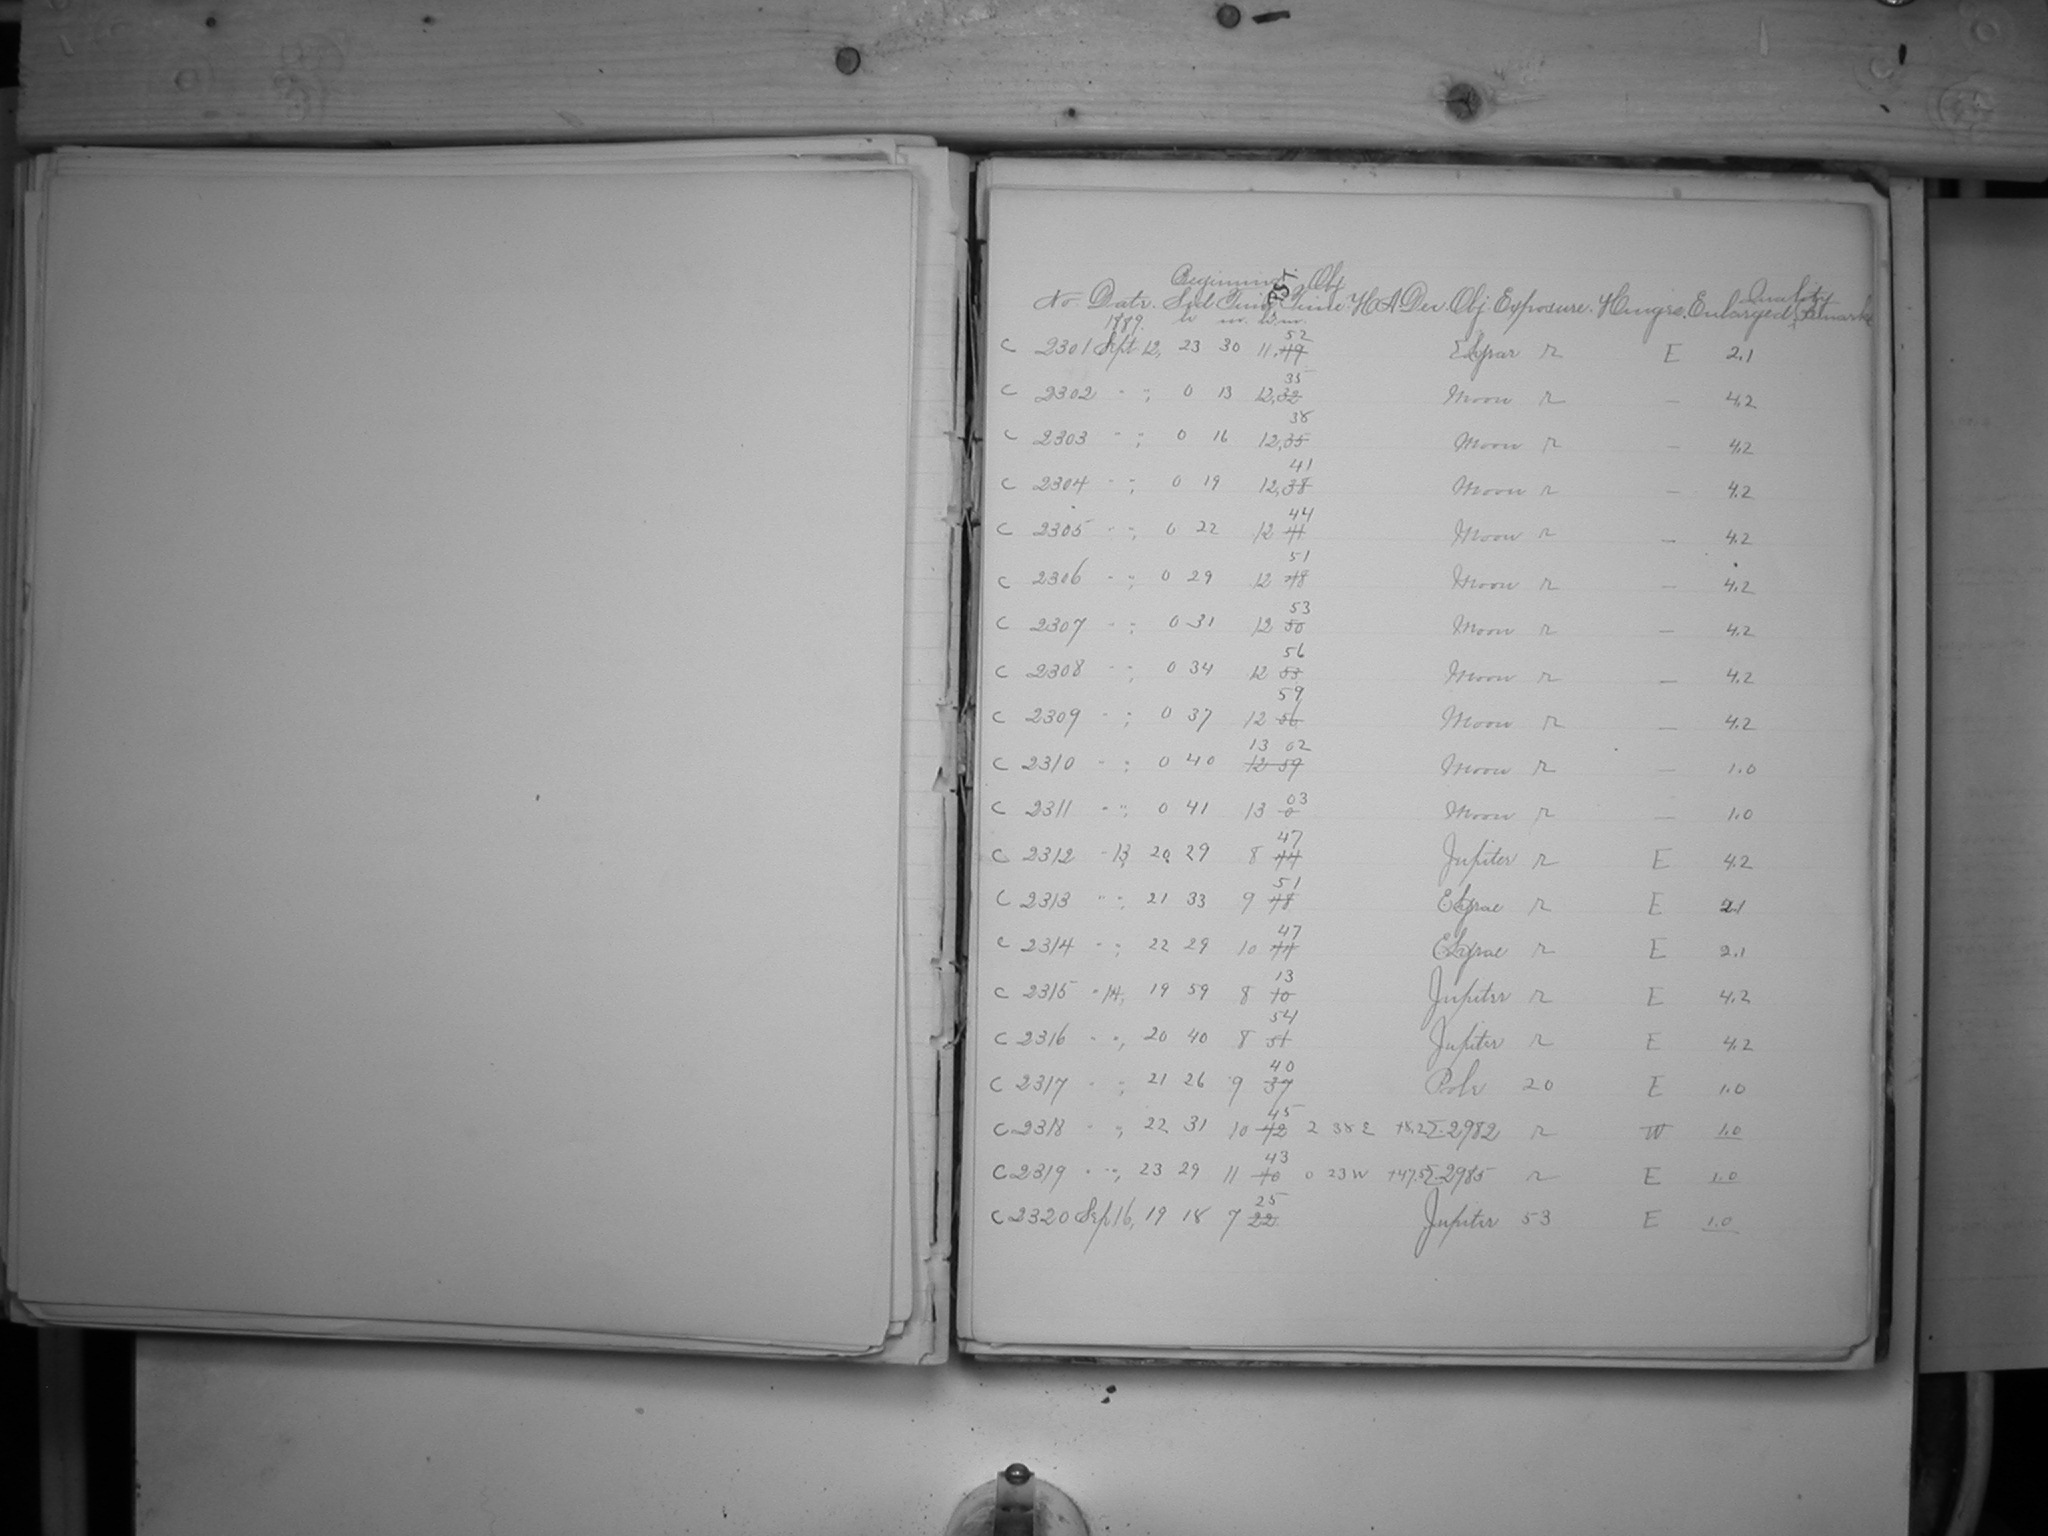 Beginning PST Obj Quality
No. Date. Sid Time Time. H A Dec. Obj. Exposure. Hinge. Enlarged. Remarks
1889. h m. h m.
52
C 2301 Sept 12, 23 30 11,49 E Lyrae r E 2.1
35
C 2302 " " 0 13 12,32 Moon r — 4.2
38
C 2303 " " 0 16 12,35 Moon r — 4.2
41
C 2304 " " 0 19 12,38 Moon r — 4.2
44
C 2305 " " 0 22 12 41 Moon r — 4.2
51
C 2306 " " 0 29 12 48 Moon r — 4.2
53
C 2307 " " 0 31 12 50 Moon r — 4.2
56
C 2308 " " 0 34 12 53 Moon r — 4.2
59
C 2309 " " 0 37 12 56 Moon r — 4.2
13 02
C 2310 " " 0 40 12 59 Moon r — 1.0
03
C 2311 " " 0 41 13 0 Moon r — 1.0
47
C 2312 " 13, 20 29 8 44 Jupiter r E 4.2
51
C 2313 " " 21 33 9 48 E Lyrae r E 2.1
47
C 2314 " " 22 29 10 44 E Lyrae r E 2.1
13
C 2315 " 14, 19 59 8 10 Jupiter r E 4.2
54
C 2316 " " 20 40 8 51 Jupiter r E 4.2
40
C 2317 " " 21 26 9 37 Pole 20 E 1.0
45
C 2318 " " 22 31 10 42 2 38 E +8.2 Σ.2982 r W 1.0
43
C 2319 " " 23 29 11 40 0 23 W +47.5 Σ.2985 r E 1.0
25
C 2320 Sep 16, 19 18 7 22 Jupiter 53 E 1.0